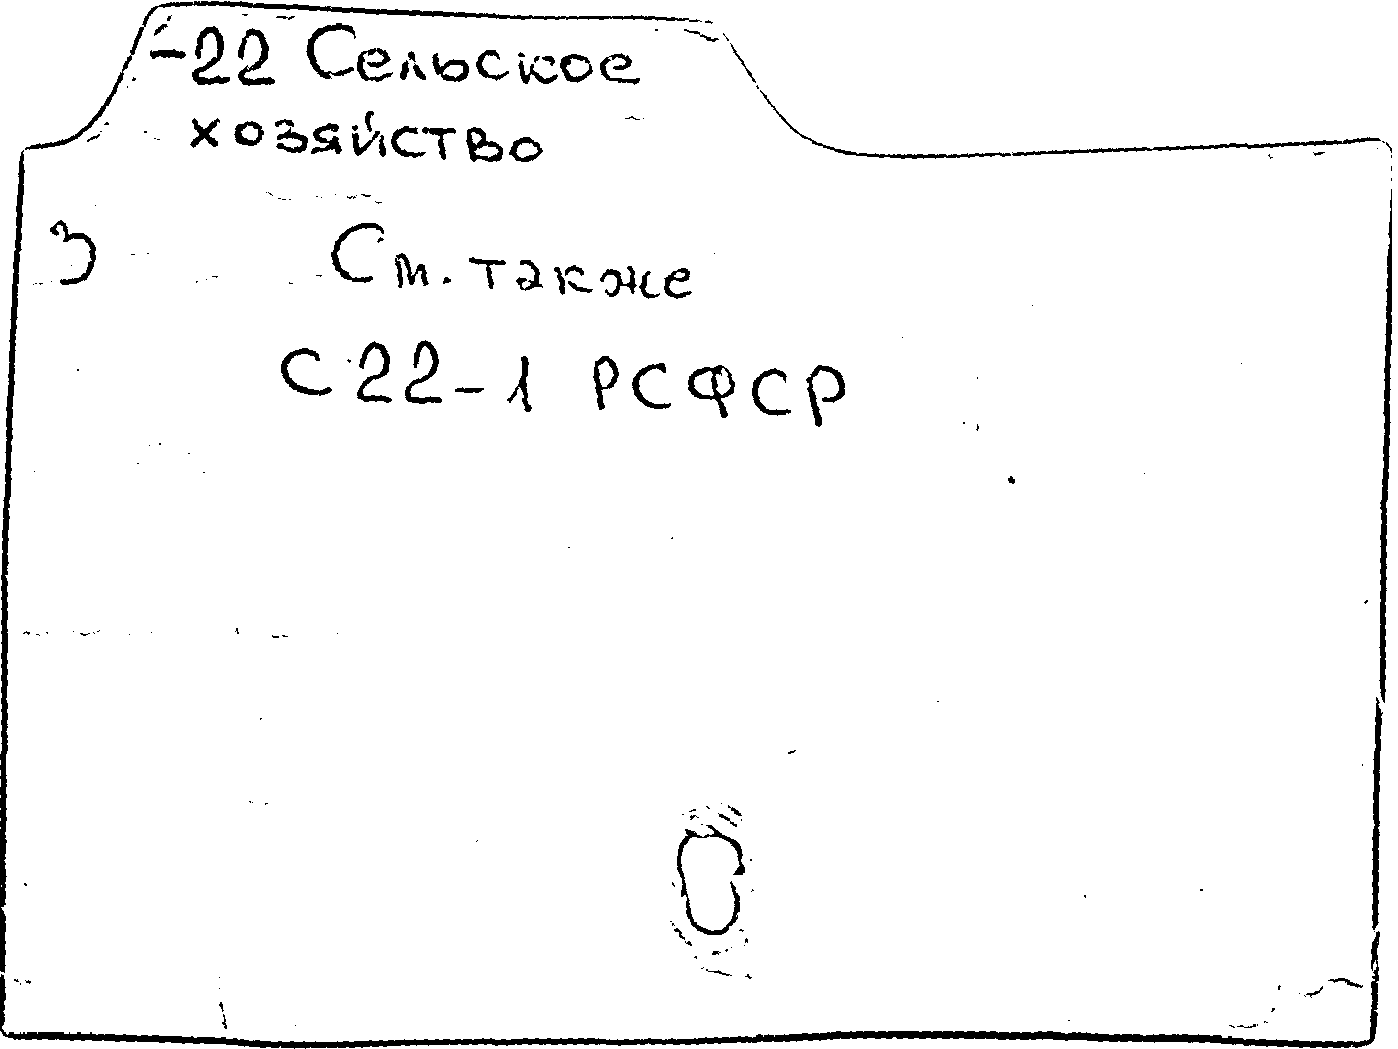 -22 Сельское
хозяйство
3 См. также
С22-1 РСФСР